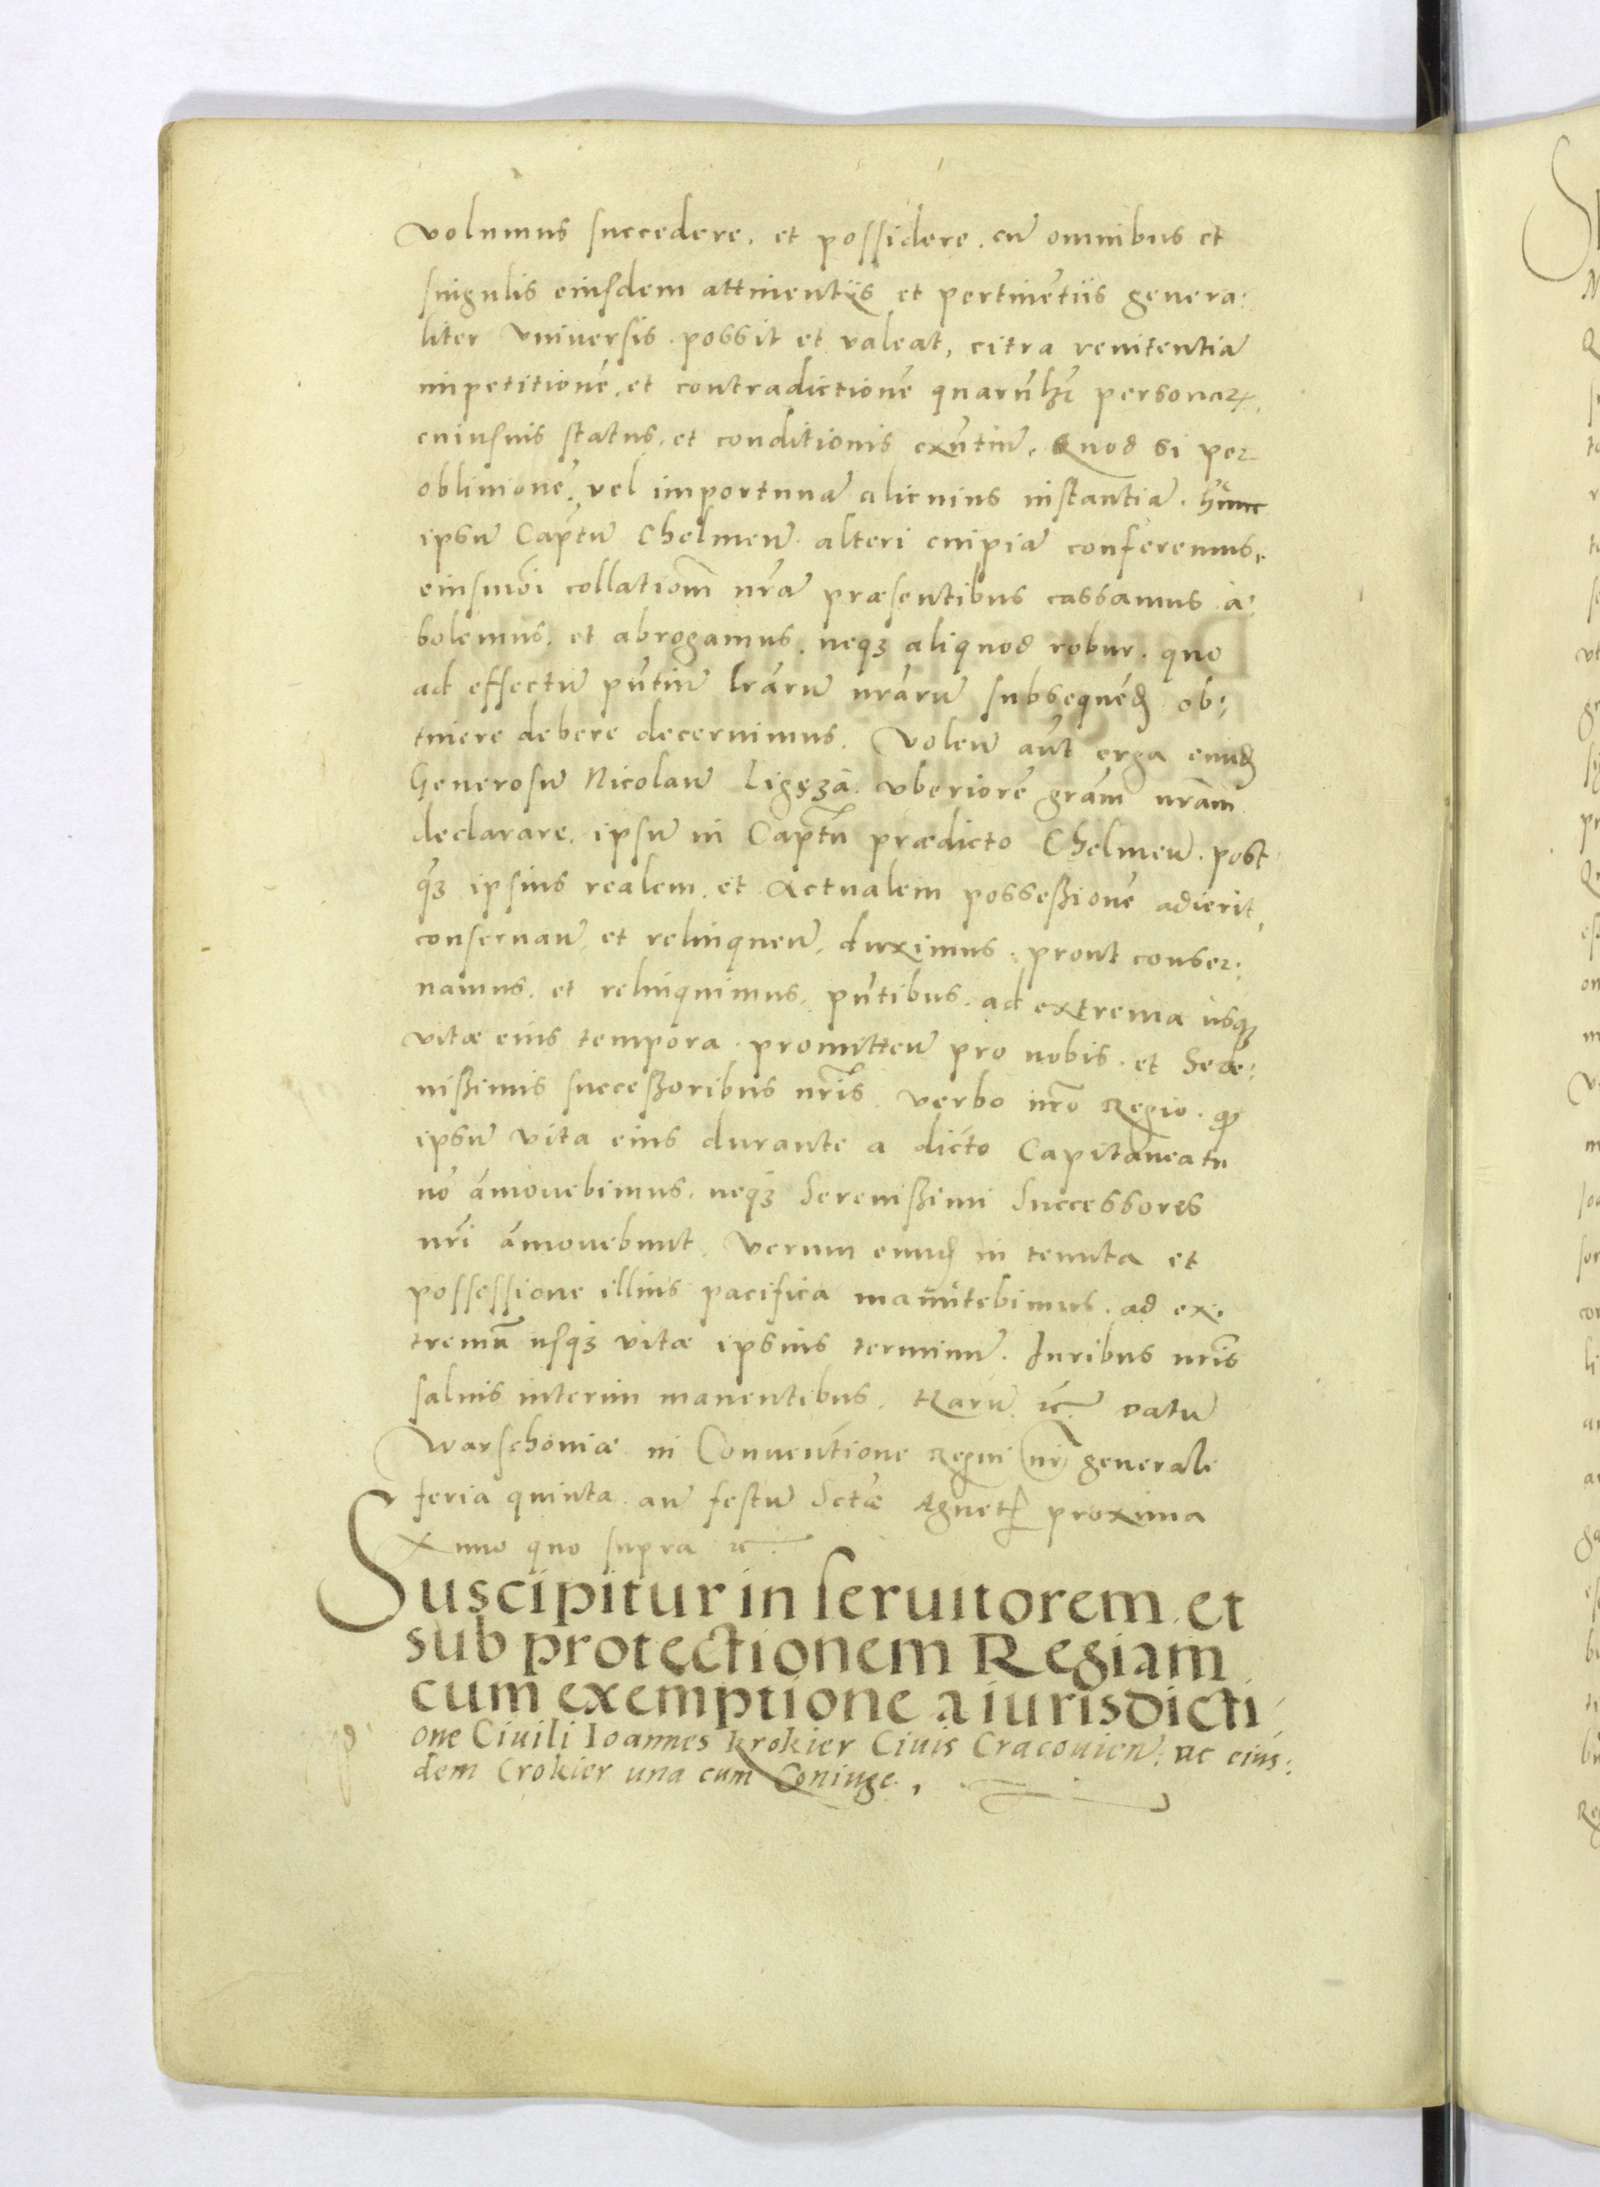 volumus succedere, et possidere, cū omnibus et
singulis eiusdem attinentijs et pertinētiis genera:
liter vniuersis possit et valeat, citra renitentiā
impetitionē, et contradictionē quarūlꝫ personaꝝ,
cuiusuis status, et conditionis exñtiū, Quod si per
obliuionē, vel importunā alicuius instantiā,
ipsū Captū Chelmeñ alteri cuipiā conferemus,
eiusmōi collationē nrā præsentibus cassamus a:
bolemus, et abrogamus, neqꝫ aliquod robur, quo
ad effectū pñtiū lrarū nrarū subsequeñ ob:
tinere debere decernimus. Voleñ aūt erga eund
Generosū Nicolaū Ligęzā vberiorē grām nrām
declarare, ipsū in Captū prædicto Chelmeñ, post
qꝫ ipsius realem, et actualem possessionē adierit,
conseruañ et relinqueñ, duximus, prout conser:
uamus, et relinquimus, pñtibus, ad extrema usqꝫ
vitæ eius tempora, promitteñ pro nobis, et Sere:
nißimis succeßoribus nrīs, verbo nrō Regio, ꝙ
ipsū vita eius durante a dicto Capitaneatu
nō amouebimus, neqꝫ Serenißimi Successores
nrī amouebunt, verum eund in tenuta et
possessione illius pacifica manutebimus, ad ex:
tremū usqꝫ vitæ ipsius terminū. Iuribus nrīs
saluis interim manentibus. Harū etc. Datū
Warschouiæ in Conuentione Regni nrī generali
feria quinta añ festū Sctæ Agnet proxima
Anno quo supra etc.
Suscipitur in seruitorem et
sub protectionem Regiam
cum exemptione a iurisdicti
one Ciuili Ioannes Krokier Ciuis Cracouieñ: ac eius:
dem Crokier una cum Coniuge.